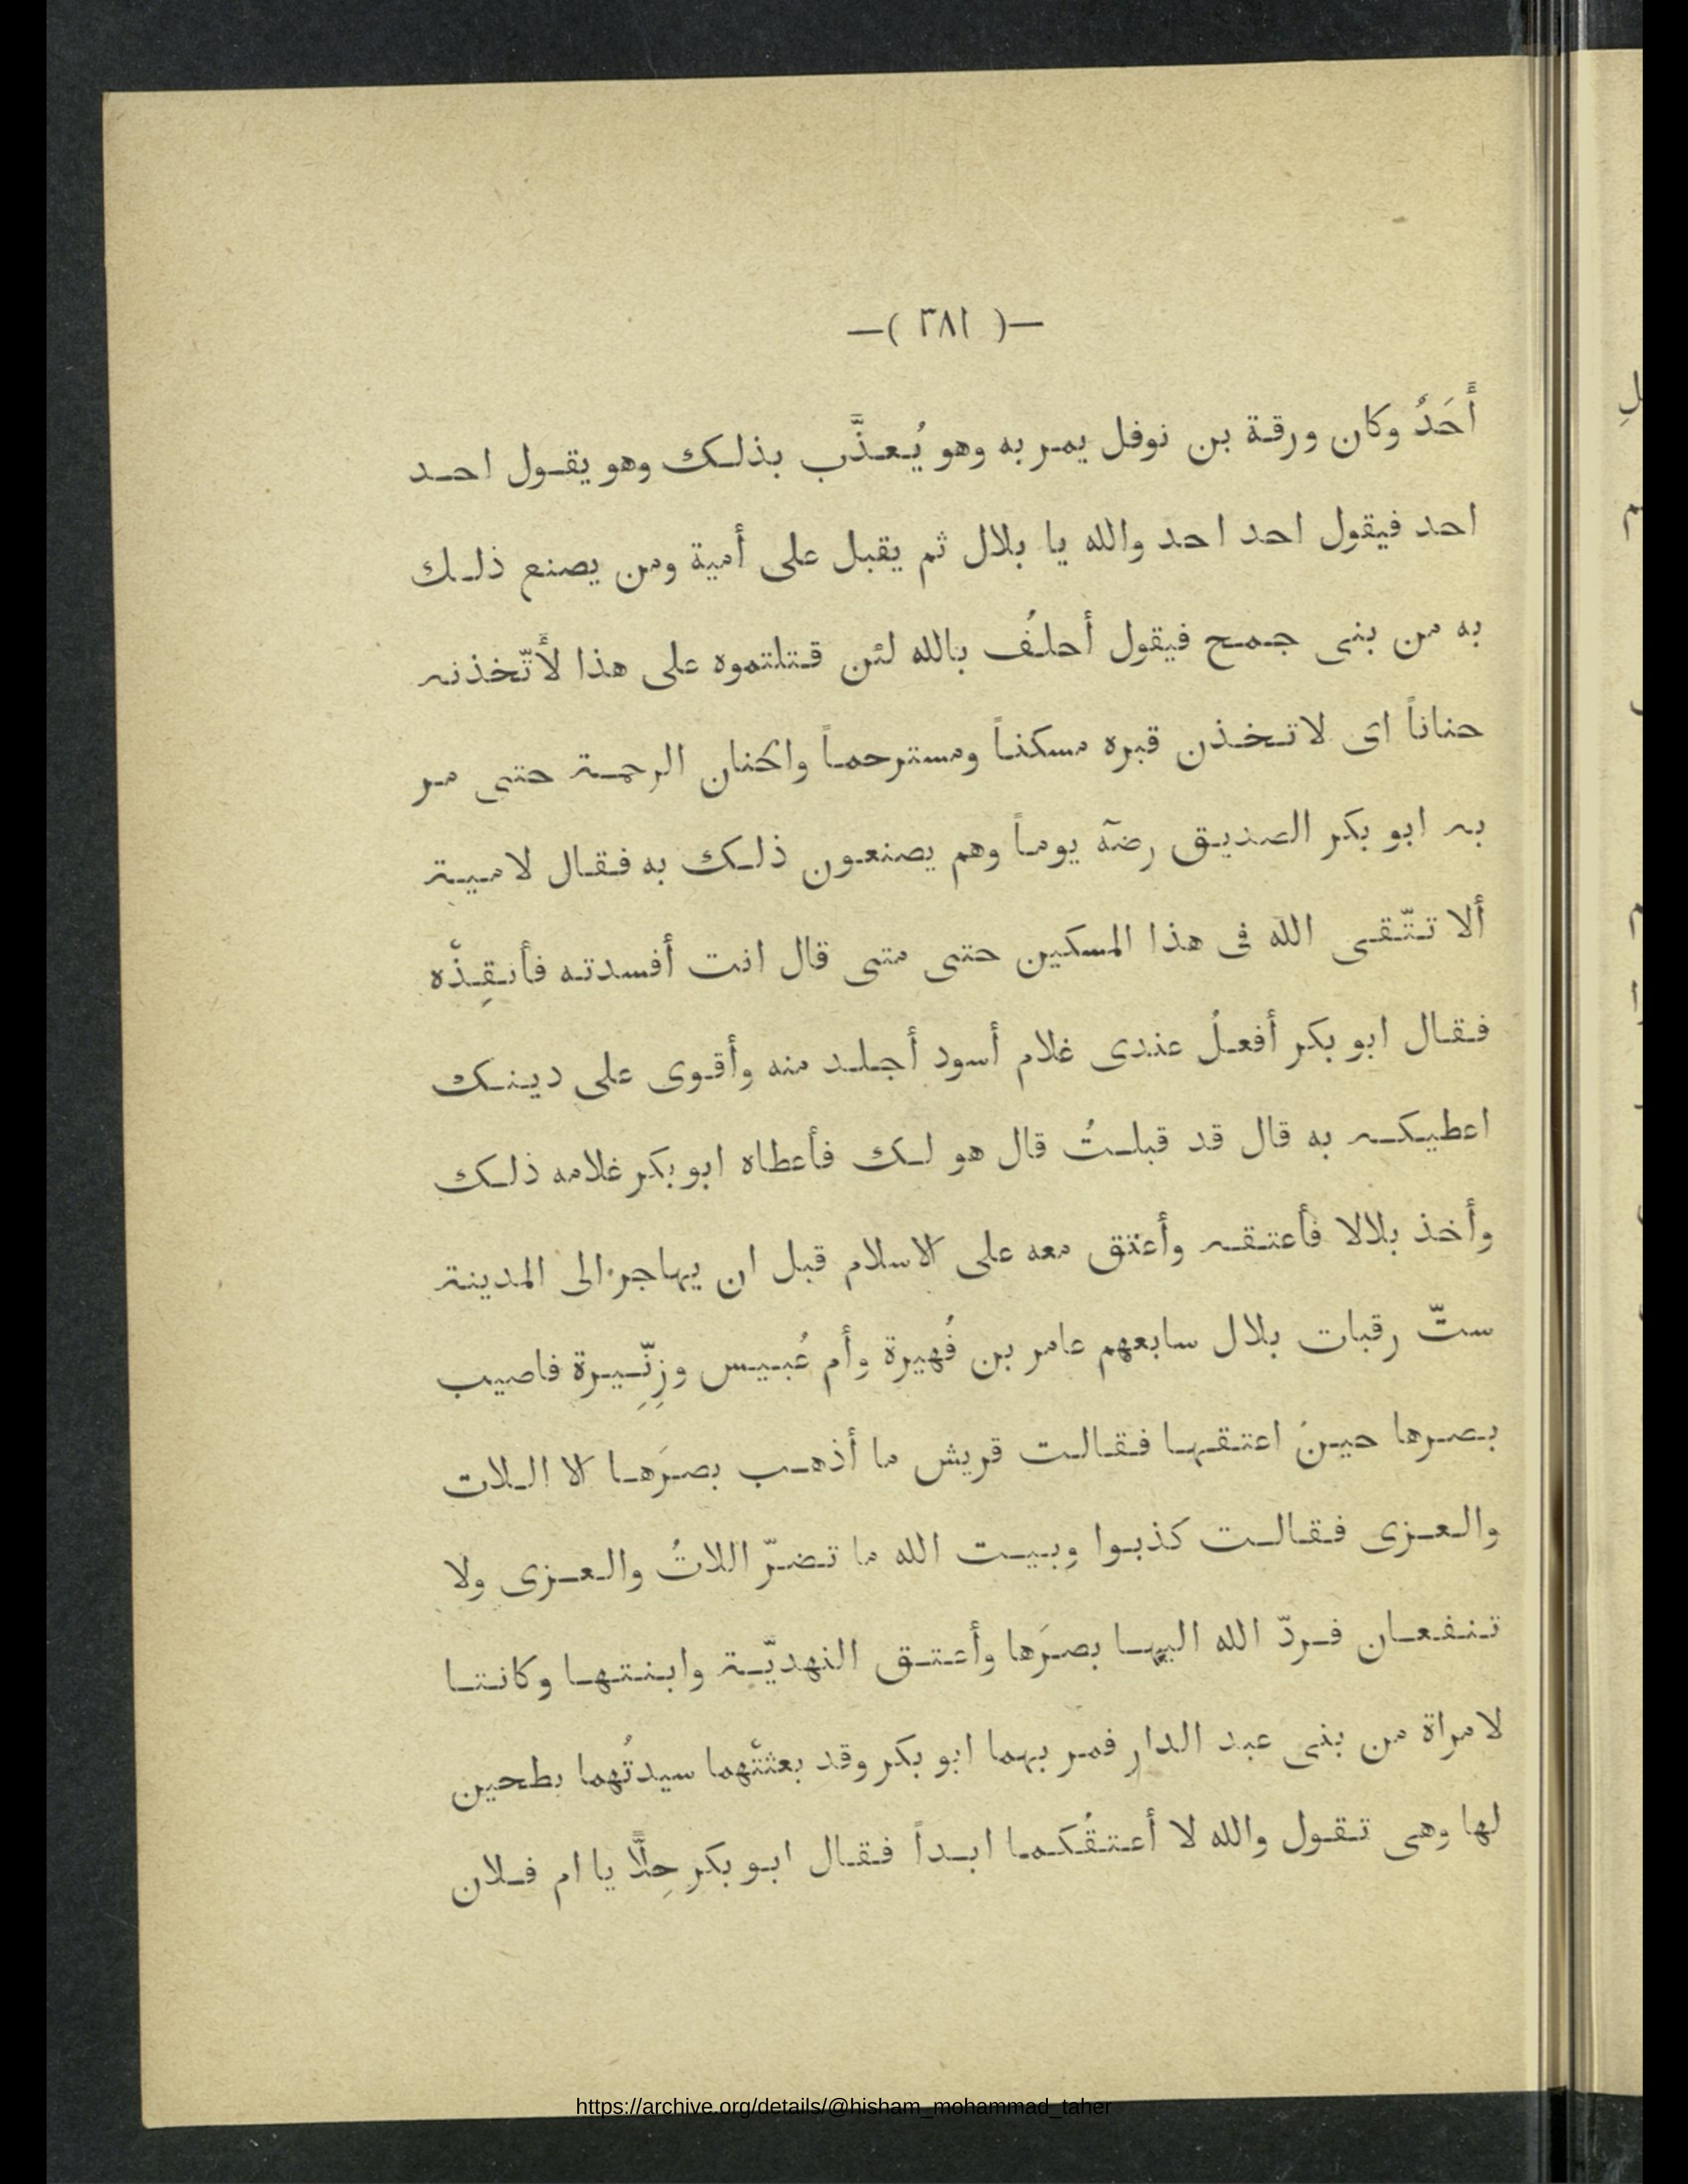 —( ٣٨١ )—
أَحَدٌ وكان ورقة بن نوفل يمر به وهو يُعذَّب بذلك وهو يقول احد
احد فيقول احد احد والله يا بلال ثم يقبل على أمية ومن يصنع ذلك
به من بنى جمح فيقول أحلفُ بالله لئن قتلتموه على هذا لأتّخذنه
حناناً اى لاتخذن قبره مسكناً ومسترحماً والحنان الرحمة حتى مر
به ابو بكر الصديق رضه يوماً وهم يصنعون ذلك به فقال لامية
ألا تتّقى الله فى هذا المسكين حتى متى قال انت أفسدته فأنقِذْه
فقال ابو بكر أفعلُ عندى غلام أسود أجلد منه وأقوى على دينك
اعطيكه به قال قد قبلتُ قال هو لك فأعطاه ابو بكر غلامه ذلك
وأخذ بلالا فأعتقه وأعتق معه على الاسلام قبل ان يهاجر الى المدينة
ستّ رقبات بلال سابعهم عامر بن فُهيرة وأم عُبيس وزِنِّيرة فاصيب
بصرها حين اعتقها فقالت قريش ما أذهب بصرَها الا اللات
والعزى فقالت كذبوا وبيت الله ما تضرّ اللاتُ والعزى ولا
تنفعان فردّ الله اليها بصرَها وأعتق النهديّة وابنتها وكانتا
لامراة من بنى عبد الدار فمر بهما ابو بكر وقد بعثتْهما سيدتُهما بطحين
لها وهى تقول والله لا أعتقُكما ابداً فقال ابو بكر حِلًّا يا ام فلان
https://archive.org/details/@hisham_mohammad_taher